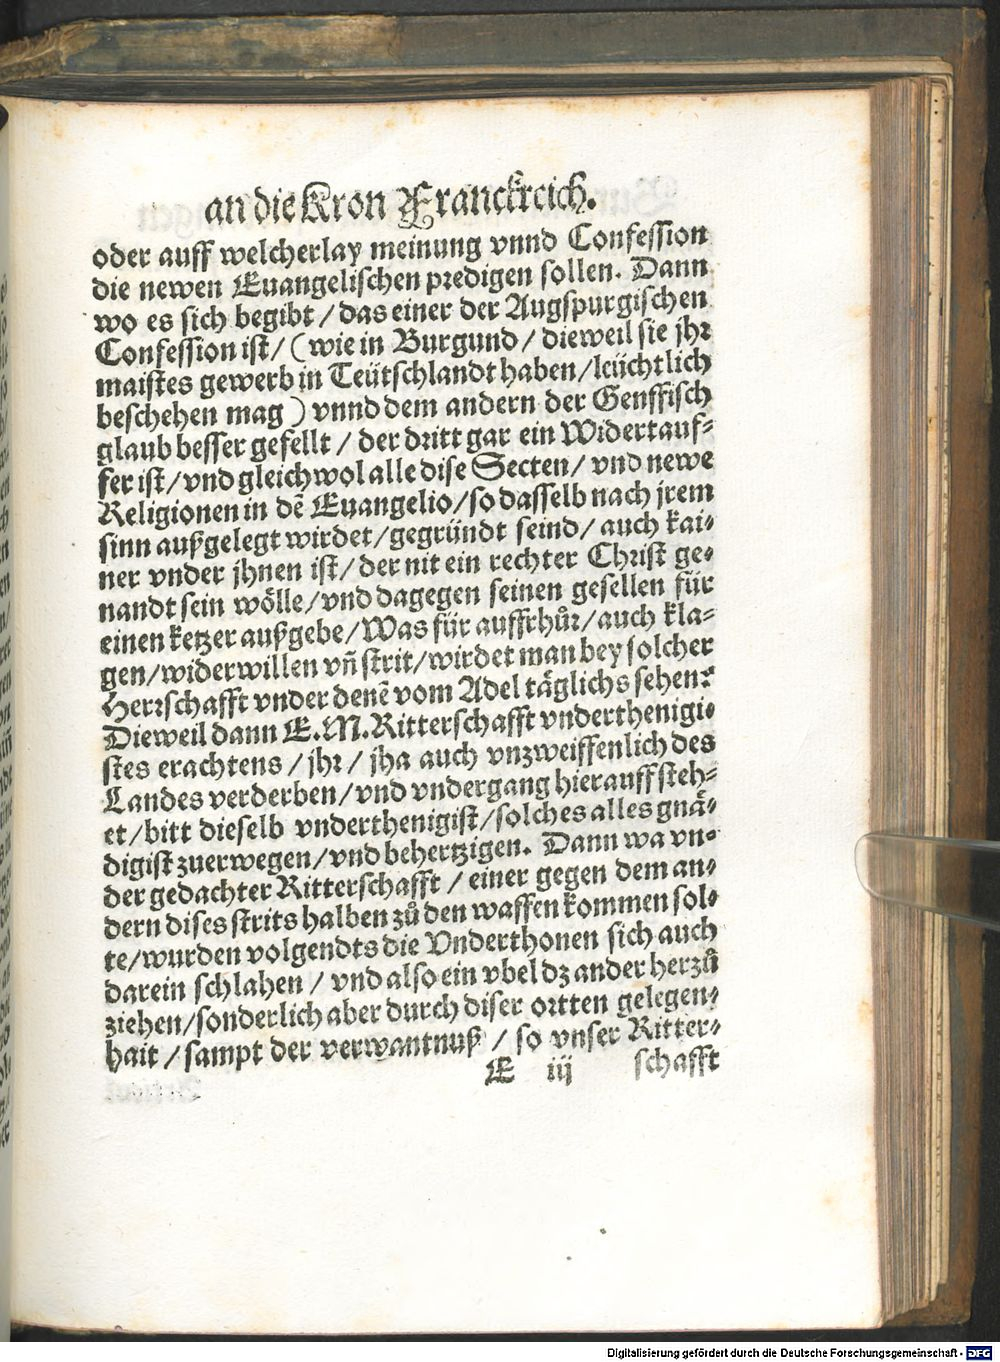 an die Kron Franckreich.
oder auff welcherlay meinung vnnd Confession
die newen Euangelischen predigen sollen. Dann
wo es sich begibt / das einer der Augspurgischen
Confession ist / (wie in Burgund / dieweil sie jhr
maistes gewerb in Teütschlandt haben / leüchtlich
beschehen mag) vnnd dem andern der Genffisch
glaub besser gefellt / der dritt gar ein Widertauf-
fer ist / vnd gleichwol alle dise Secten / vnd newe
Religionen in dẽ Euangelio / so dasselb nach jrem
sinn außgelegt wirdet / gegründt seind / auch kai-
ner vnder jhnen ist / der nit ein rechter Christ ge-
nandt sein wölle / vnd dagegen seinen gesellen für
einen ketzer außgebe / Was für auffrhůr / auch kla-
gen / widerwillen vñ strit / wirdet man bey solcher
Herrschafft vnder denẽ vom Adel täglichs sehen?
Dieweil dann E.M. Ritterschafft vnderthenigi-
stes erachtens / jhr / jha auch vnzweiffenlich des
Landes verderben / vnd vndergang hierauff steh-
et / bitt dieselb vnderthenigist / solches alles gnä-
digist zuerwegen / vnd behertzigen. Dann wa vn-
der gedachter Ritterschafft / einer gegen dem an-
dern dises strits halben zů den waffen kommen sol-
te / wurden volgendts die Vnderthonen sich auch
darein schlahen / vnd also ein vbel dz ander herzů
ziehen / sonderlich aber durch diser ortten gelegen-
hait / sampt der verwantnuß / so vnser Ritter-
E iij schafft
Digitalisierung gefördert durch die Deutsche Forschungsgemeinschaft - DFG